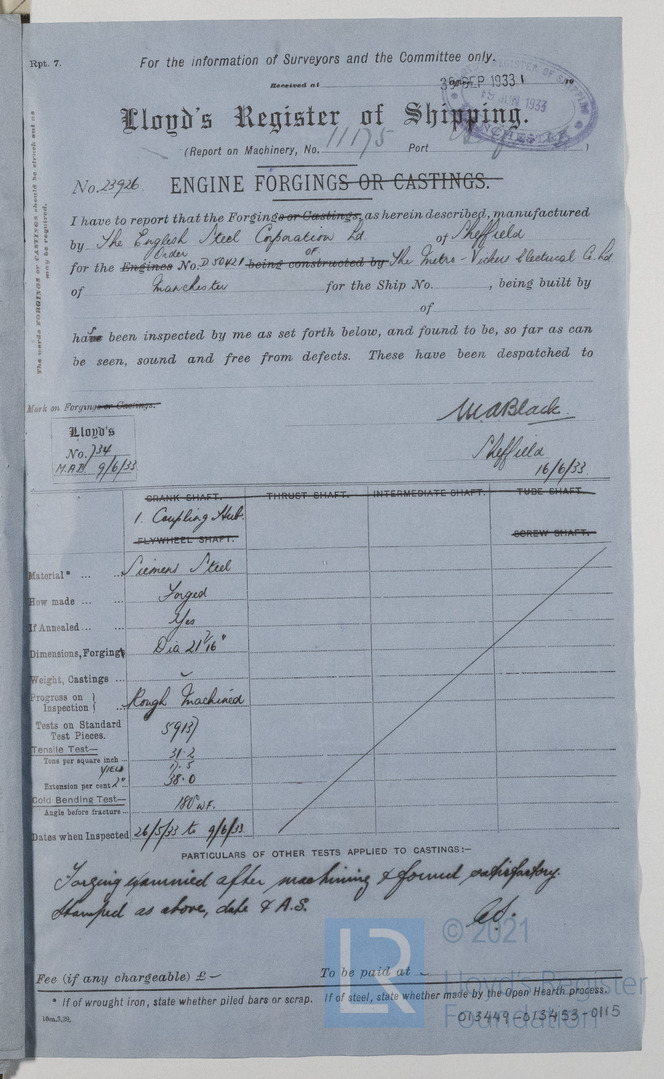 Rpt. 7.
For the information of Surveyors and the Committee only.
Received at
30 SEP 1933
19 JUN 1933
MANCHESTER
Lloyd's Register of Shipping.
(Report on Machinery, No. 11175 Port )
No. 23926. ENGINE FORGINGS OR CASTINGS.
The words FORGINGS or CASTINGS should be struck out as may be required.
I have to report that the Forgings or Castings, as herein described, manufactured
by The English Steel Corporation Ltd. of Sheffield
for the Engines Order No. D 50421 being constructed by OF The Metro-Vickers Electrical Co. Ltd
of Manchester for the Ship No. , being built by
of
have been inspected by me as set forth below, and found to be, so far as can
be seen, sound and free from defects. These have been despatched to
Mark on Forgings or Castings.
Lloyd's
No. 734
M.A.B. 9/6/33
M A Black.
Sheffield
16/6/33
CRANK SHAFT. THRUST SHAFT. INTERMEDIATE SHAFT. TUBE SHAFT.
1. Coupling Hub.
FLYWHEEL SHAFT. SCREW SHAFT.
Material* ... ... Siemens Steel
How made ... ... Forged
If Annealed ... ... Yes
Dimensions, Forgings Dia 21 7/16"
Weight, Castings ...
Progress on Inspection } ... Rough Machined
Tests on Standard Test Pieces. 5913
Tensile Test—
Tons per square inch ... 31.2
YIELD 17.5
Extension per cent 2" 38.0
Cold Bending Test—
Angle before fracture ... 180° W.F.
Dates when Inspected 26/5/33 to 9/6/33
PARTICULARS OF OTHER TESTS APPLIED TO CASTINGS:—
Forging examined after machining & found satisfactory.
Stamped as above, date & A.S.
A.S.
Fee (if any chargeable) £ — To be paid at —
* If of wrought iron, state whether piled bars or scrap. If of steel, state whether made by the Open Hearth process.
10m,3,20.
LR
© 2021
Lloyd's Register
Foundation
013449-013453-0115